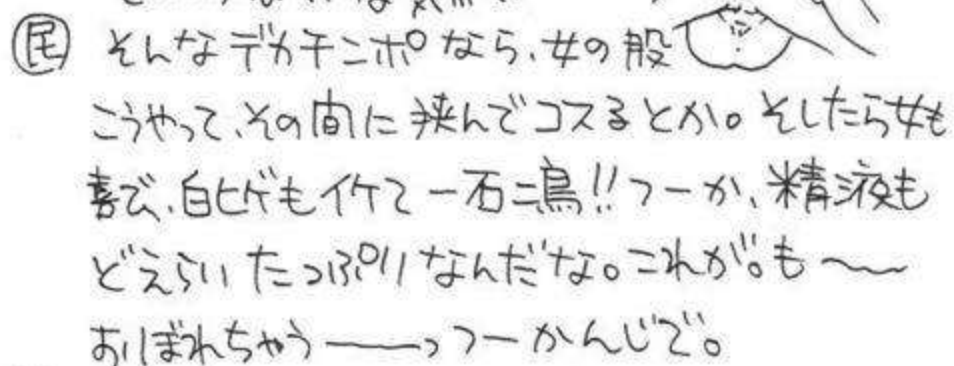 尾 そんなデカチンポなら、女の股
こうやって、その間に挟んでコスるとか。そしたら女も
喜で、白ヒゲもイケて一石二鳥!!つーか、精液も
どえらいたっぷりなんだな。これが。も〜〜
おぼれちゃう――っつーかんじで。